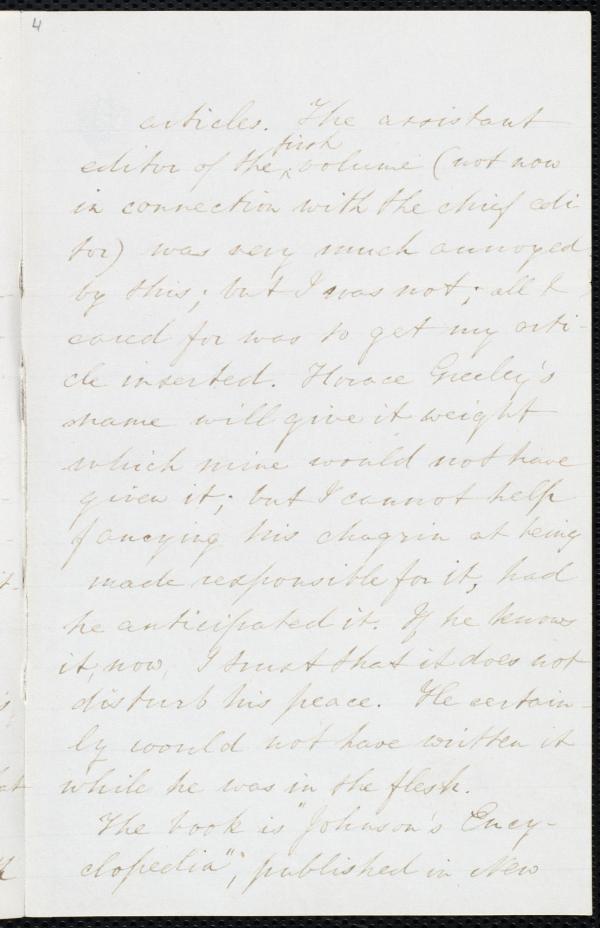 4
articles. The assistant
editor of the first volume (not now
in connection with the chief edi
tor) was very much annoyed
by this; but I was not; all I
cared for was to get my arti-
cle inserted. Horace Greeley's
name will give it weight
which mine would not have
given it; but I cannot help
fancying his chagrin at being
made responsible for it, had
he anticipated it. If he knows
it, now, I trust that it does not
disturb his peace. He certain-
ly would not have written it
while he was in the flesh.
The book is "Johnson's Ency-
clopedia", published in New